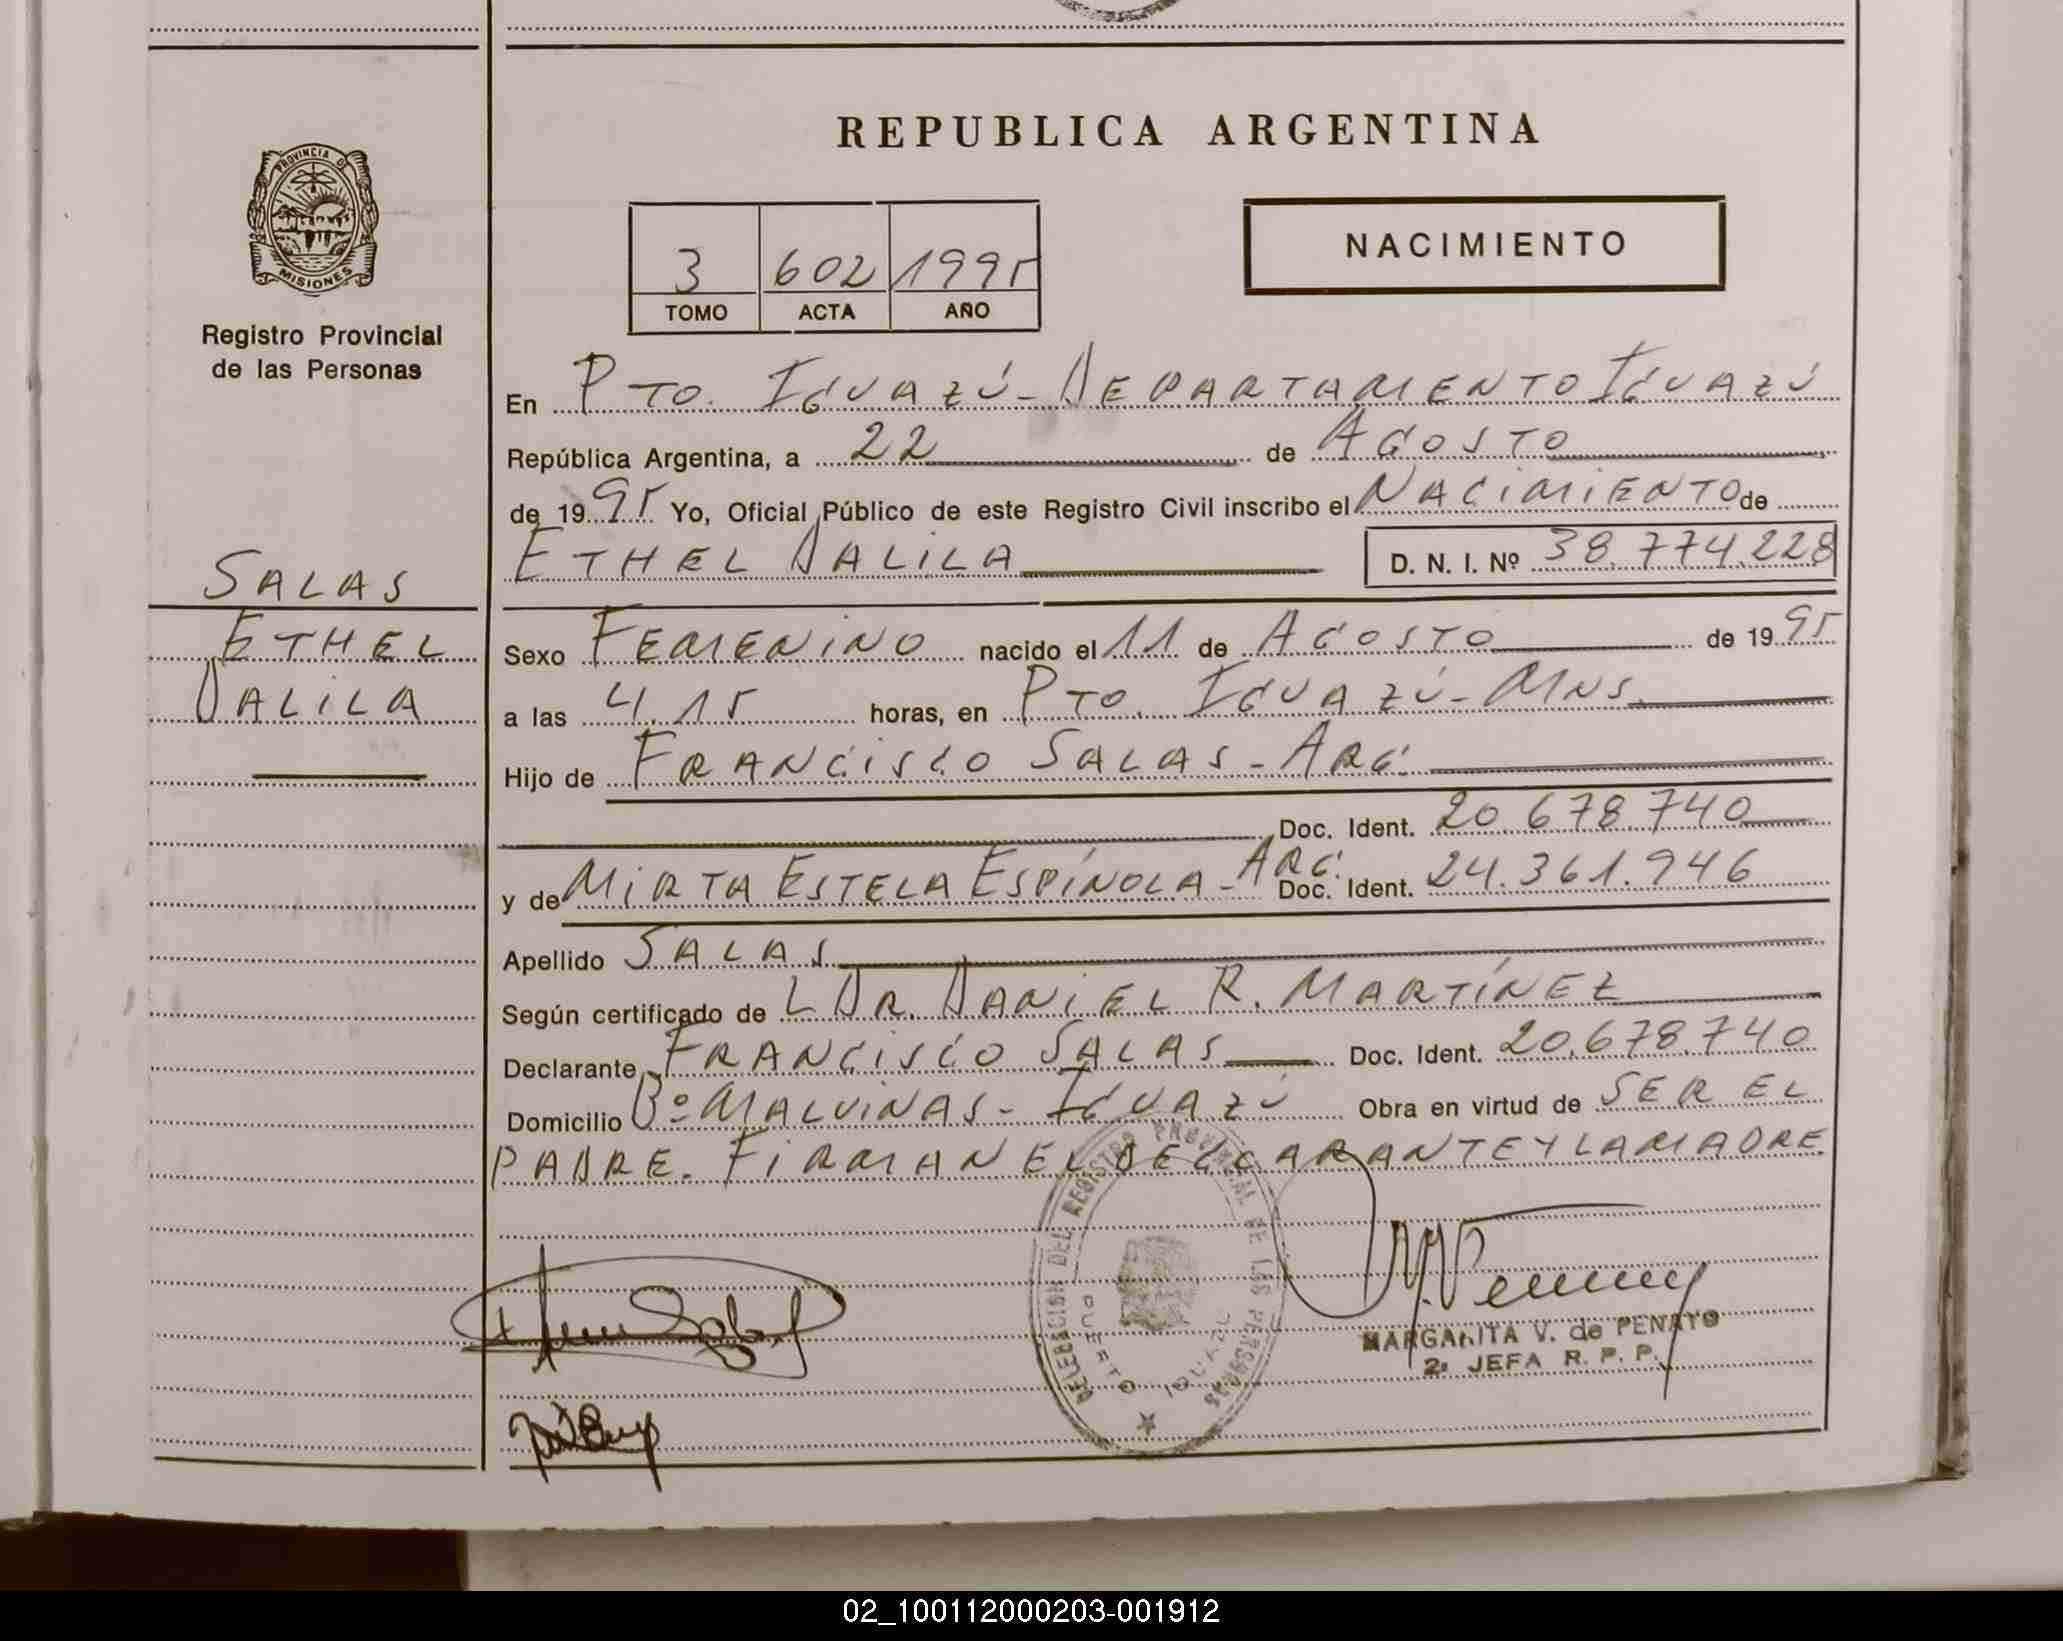 REPUBLICA ARGENTINA
PROVINCIA DE MISIONES
Registro Provincial
de las Personas
NACIMIENTO
3 602 1995
TOMO ACTA AÑO
En PTO. IGUAZÚ - DEPARTAMENTO IGUAZÚ
República Argentina, a 22 de AGOSTO
de 1995 Yo, Oficial Público de este Registro Civil inscribo el NACIMIENTO de
ETHEL DALILA D. N. I. Nº 38.774.228
SALAS
ETHEL
DALILA
Sexo FEMENINO nacido el 11 de AGOSTO de 1995
a las 4.15 horas, en PTO. IGUAZÚ - MNS.
Hijo de FRANCISCO SALAS - ARG.
Doc. Ident. 20.678.740
y de MIRTA ESTELA ESPÍNOLA - ARG. Doc. Ident. 24.361.946
Apellido SALAS
Según certificado de L DR. DANIEL R. MARTÍNEZ
Declarante FRANCISCO SALAS Doc. Ident. 20.678.740
Domicilio Bº MALVINAS - IGUAZÚ Obra en virtud de SER EL
PADRE. FIRMAN EL DECLARANTE Y LA MADRE.
DELEGACION DEL REGISTRO PROVINCIAL DE LAS PERSONAS
PUERTO IGUAZU
MARGARITA V. de PENAYO
2º JEFA R. P. P.
02_100112000203-001912